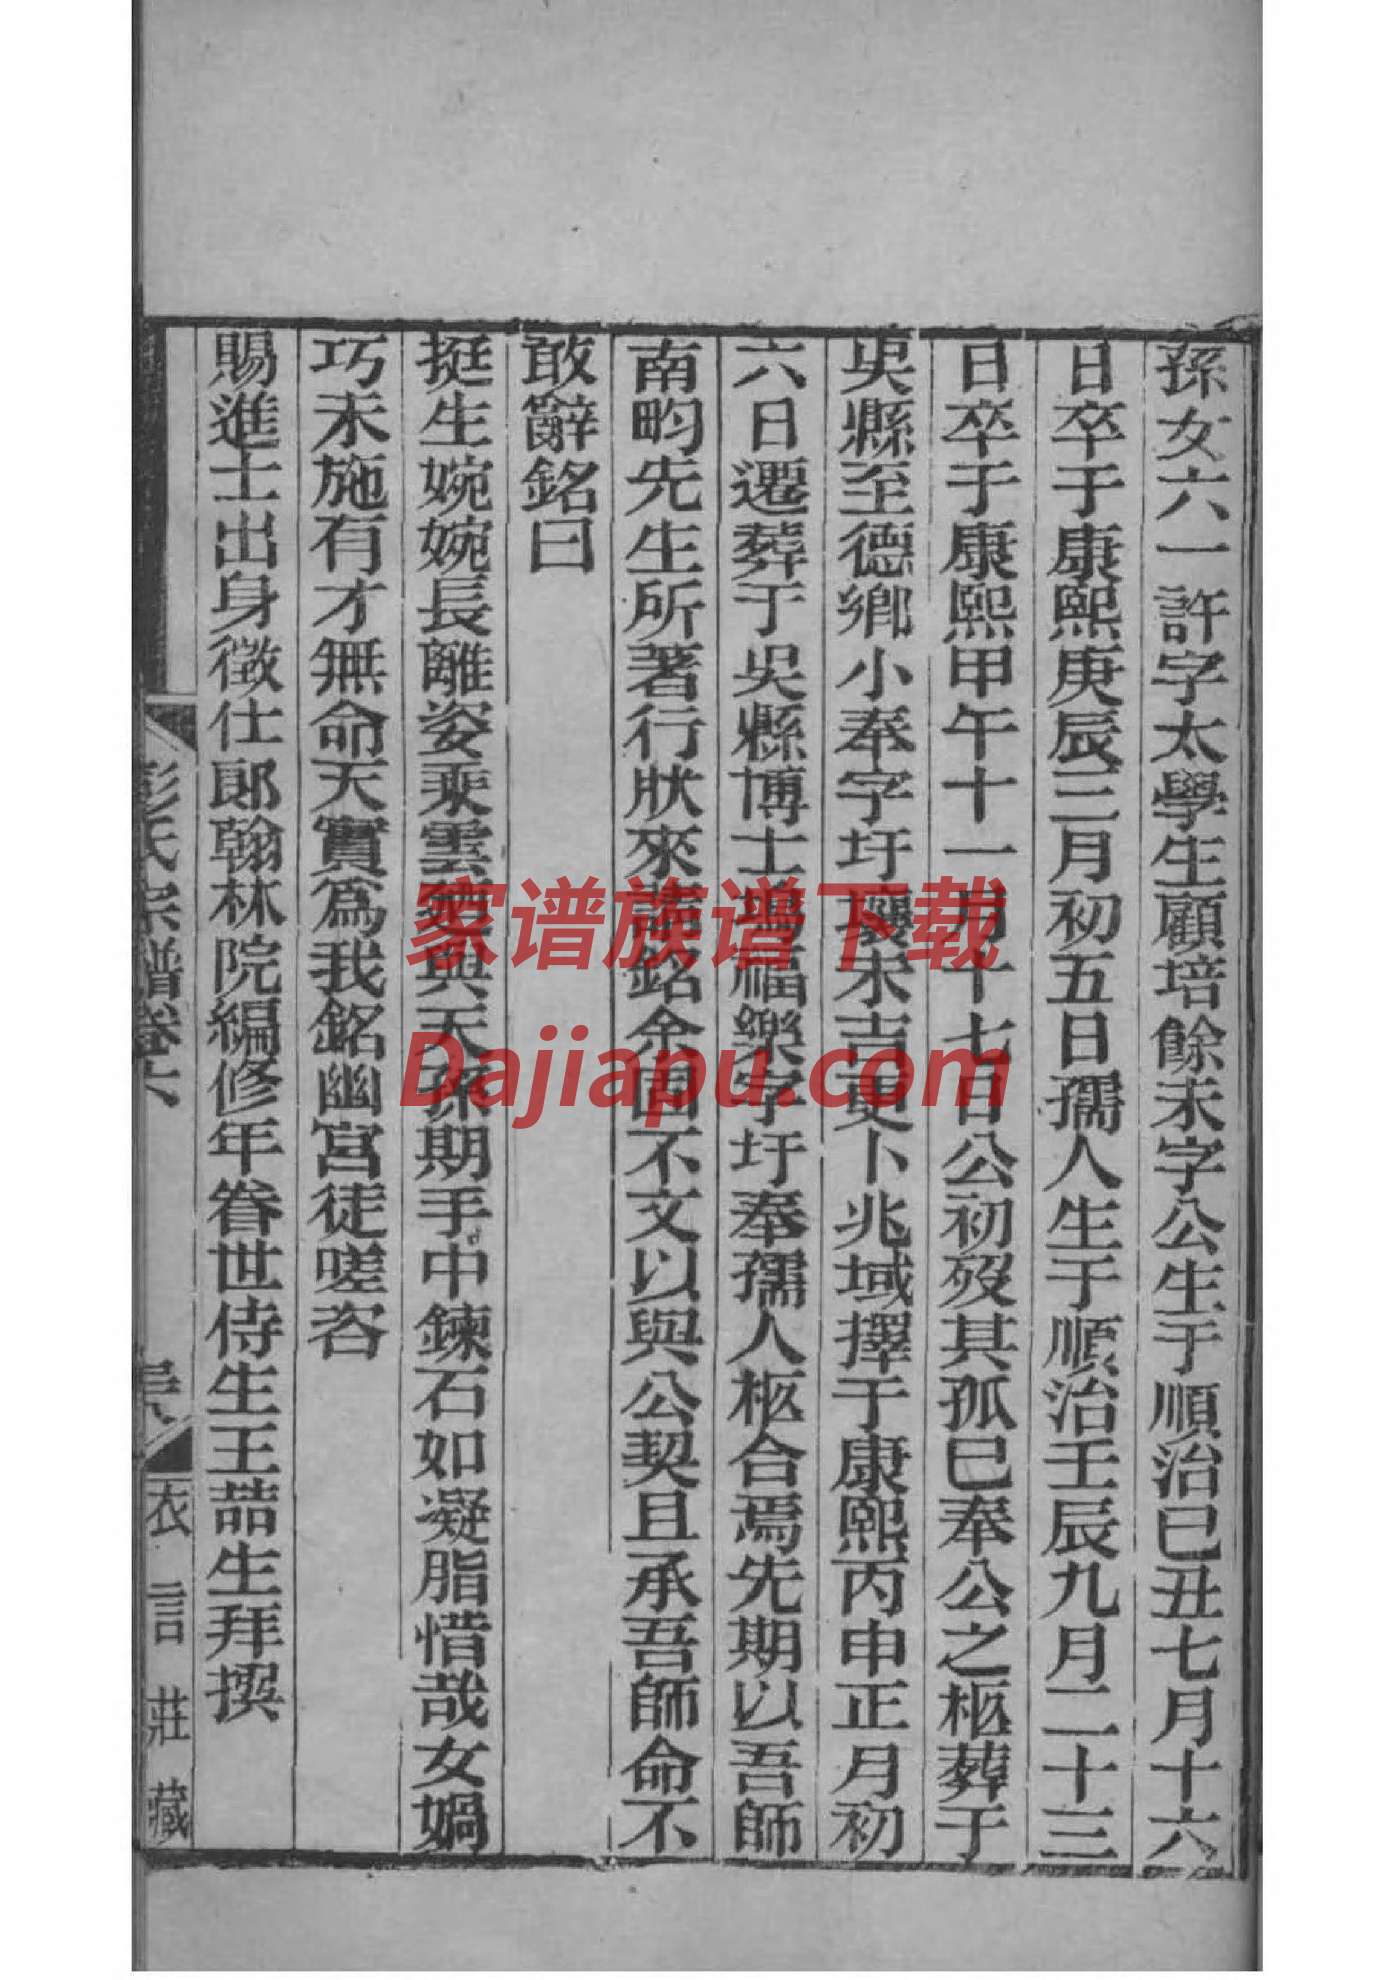 孫女六一許字太學生顧培餘未字公生于順治己丑七月十六
日卒于康熙庚辰三月初五日孺人生于順治壬辰九月二十三
日卒于康熙甲午十一月十七日公初歿其孤巳奉公之柩葬于
吳縣至德鄉小奉字圩襄未吉更卜兆域擇于康熙丙申正月初
六日遷葬于吳縣博士塢福樂字圩奉孺人柩合焉先期以吾師
南畇先生所著行狀來請銘余固不文以與公契且承吾師命不
敢辭銘曰
挺生婉婉長離姿乘雲與天孫期手中鍊石如凝脂惜哉女媧
巧未施有才無命天實爲我銘幽宮徒嗟咨
賜進士出身徵仕郎翰林院編修年眷世侍生王喆生拜撰
彭氏宗譜卷六
衣言莊藏
家谱族谱下载
Dajiapu.com